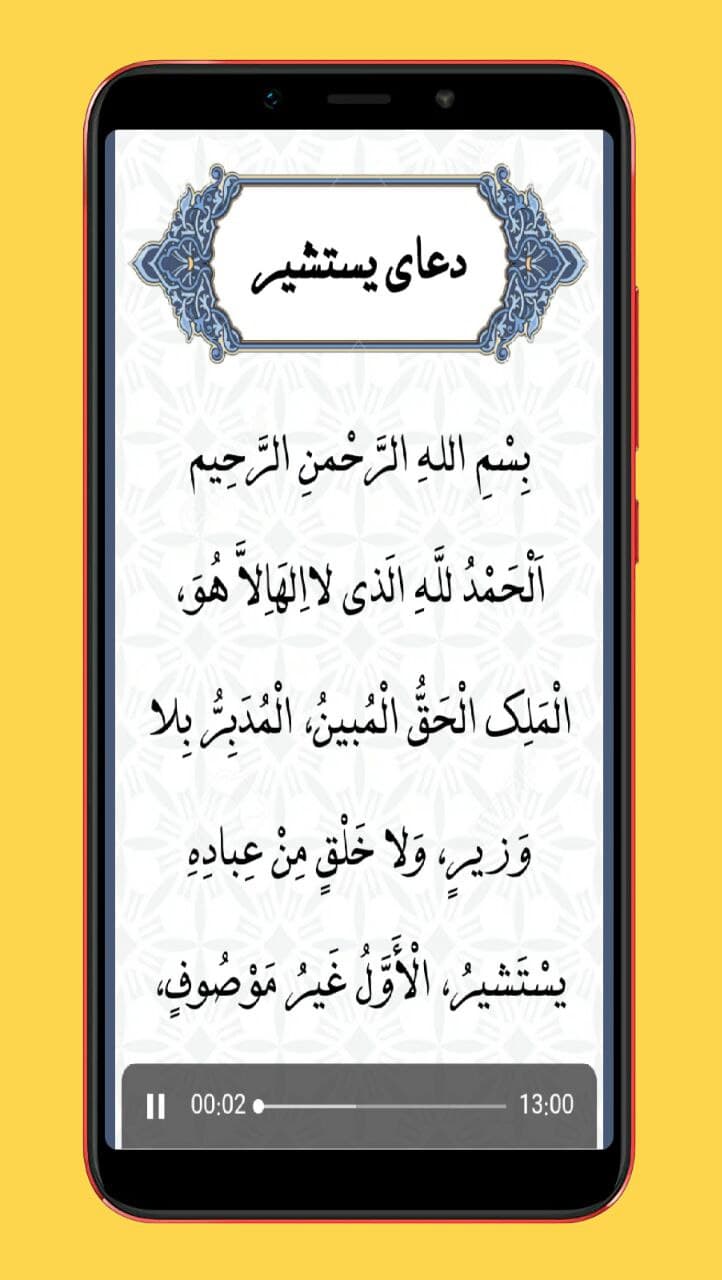 دعای یستشیر
بِسْمِ اللهِ الرَّحْمنِ الرَّحِیم
اَلْحَمْدُ للَّهِ الَذی لااِلهَاِلاَّ هُوَ،
الْمَلِک الْحَقُّ الْمُبینُ، الْمُدَبِرُّ بِلا
وَزیرٍ، وَلا خَلْقٍ مِنْ عِبادِهِ
یسْتَشیرُ، الْأَوَّلُ غَیرُ مَوْصُوفٍ،
00:02 13:00